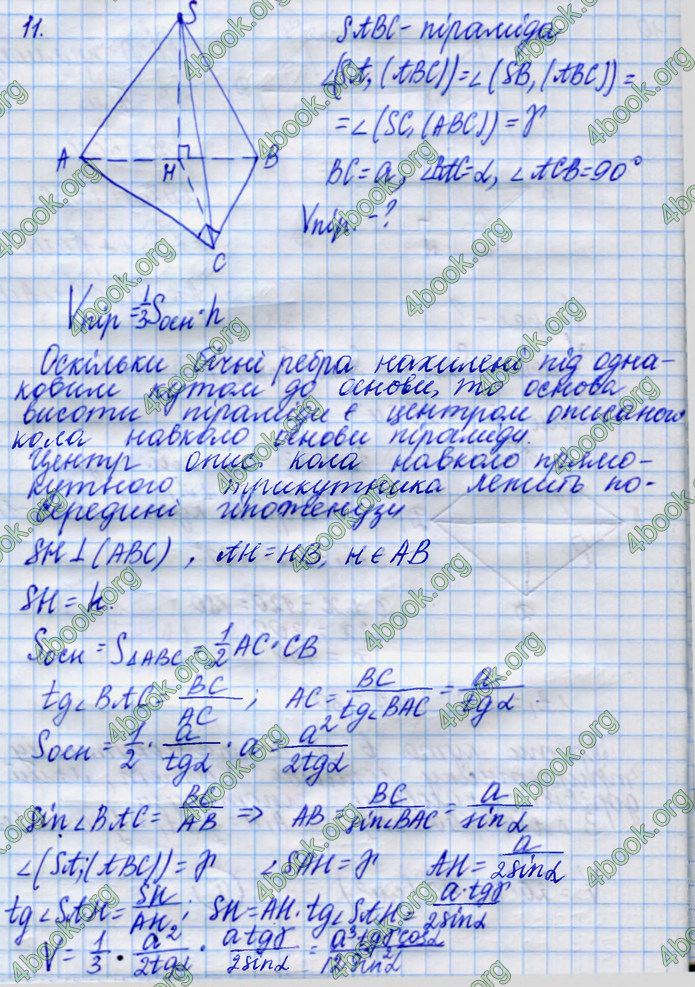 11.
S
A
B
H
C
SABC - піраміда
∠(SA, (ABC)) = ∠(SB, (ABC)) =
= ∠(SC, (ABC)) = γ
BC = a, ∠BAC = α, ∠ACB = 90°
Vпір. - ?
Vпір = 1/3 Sосн · h
Оскільки бічні ребра нахилені під одна-
ковим кутом до основи, то основа
висоти піраміди є центром описаного
кола навколо основи піраміди.
Центр опис. кола навколо прямо-
кутного трикутника лежить по-
середині гіпотенузи
SH ⊥ (ABC), AH = HB, H ∈ AB
SH = h.
Sосн = S△ABC = 1/2 AC · CB
tg∠BAC = BC/AC; AC = BC/tg∠BAC = a/tgα.
Sосн = 1/2 · a/tgα · a = a²/2tgα
sin∠BAC = BC/AB => AB = BC/sin∠BAC = a/sinα
∠(SA; (ABC)) = γ ∠SAH = γ AH = a/2sinα
tg∠SAH = SH/AH; SH = AH · tg∠SAH = a·tgγ/2sinα
V = 1/3 · a²/2tgα · atgγ/2sinα = a³tgγcosα/12sin²α
4book.org